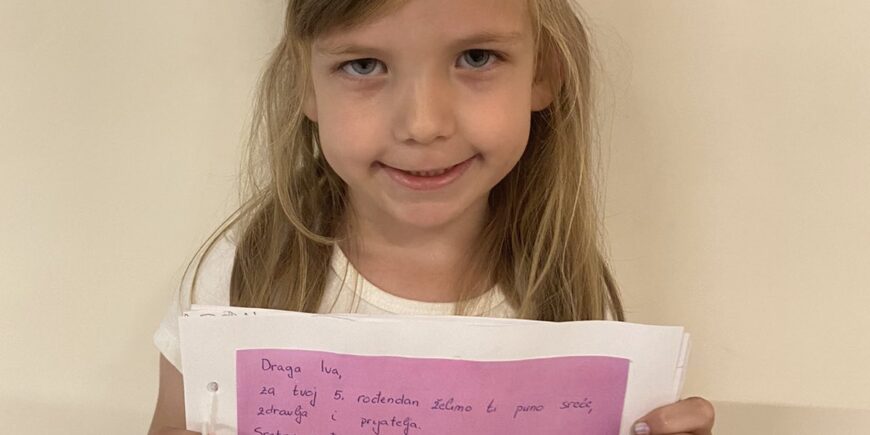 Draga Iva,
za tvoj 5. rođendan želimo ti puno sreće,
zdravlja i prijatelja.